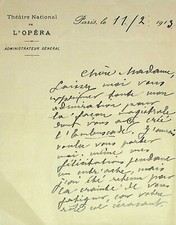 Théâtre National
DE
L'OPÉRA
ADMINISTRATEUR GÉNÉRAL
Paris, le 11/2 1913
Chère Madame,
Laissez moi vous
exprimer toute mon
admiration pour
la façon magistrale
dont vous avez créé
l'embuscade. J'aurais
voulu vous porter
moi même mes
félicitations pendant
un entr'acte, mais
j'ai été retenu par
la crainte de vous
fatiguer, car votre
rôle est écrasant.